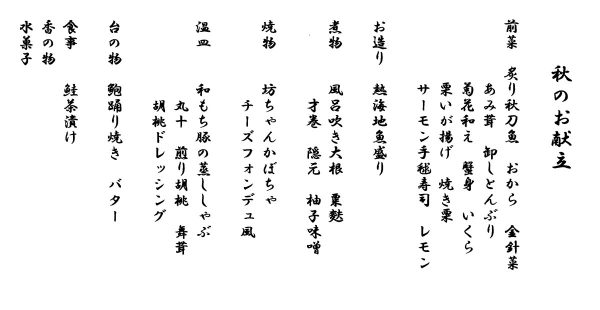 秋のお献立
前菜　炙り秋刀魚　おから　金針菜
あみ茸　卸しとんぶり
菊花和え　蟹身　いくら
栗いが揚げ　焼き栗
サーモン手毬寿司　レモン
お造り　熱海地魚盛り
煮物　風呂吹き大根　粟麩
才巻　隠元　柚子味噌
焼物　坊ちゃんかぼちゃ
チーズフォンデュ風
温皿　和もち豚の蒸ししゃぶ
丸十　煎り胡桃　舞茸
胡桃ドレッシング
台の物　鮑踊り焼き　バター
食事　鮭茶漬け
香の物
水菓子